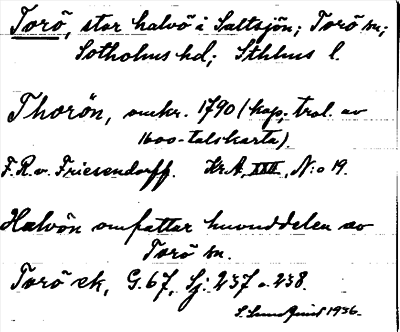 Torö, stor halvö i Saltsjön; Torö sn;
Sotholms hd; Sthlms l.
Thorön, omkr. 1790 (kop. trol. av
1600-talskarta).
F.R.v. Friesendorff. Kr.A, XIII, N:o 19.
Halvön omfattar huvuddelen av
Torö sn.
Torö ek, G.67, Sj: 237 o. 238.
1936.